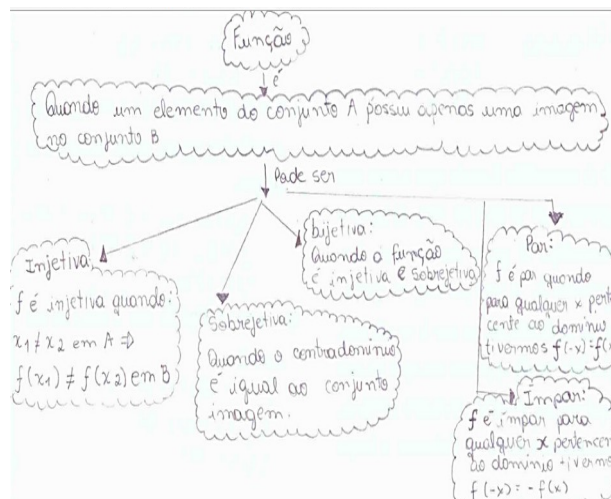 Função
é
Quando um elemento do conjunto A possui apenas uma imagem
no conjunto B
Pode ser
Injetiva
f é injetiva quando:
x1 ≠ x2 em A ⇒
f(x1) ≠ f(x2) em B
Sobrejetiva:
Quando o contradomínio
é igual ao conjunto
imagem.
bijetiva:
Quando a função
é injetiva e sobrejetiva
Par:
f é par quando
para qualquer x perten
cente ao domínio
tivermos f(-x)=f(x
Impar:
f é impar para
qualquer x pertencen
ao domínio tivermo
f(-x) = -f(x)